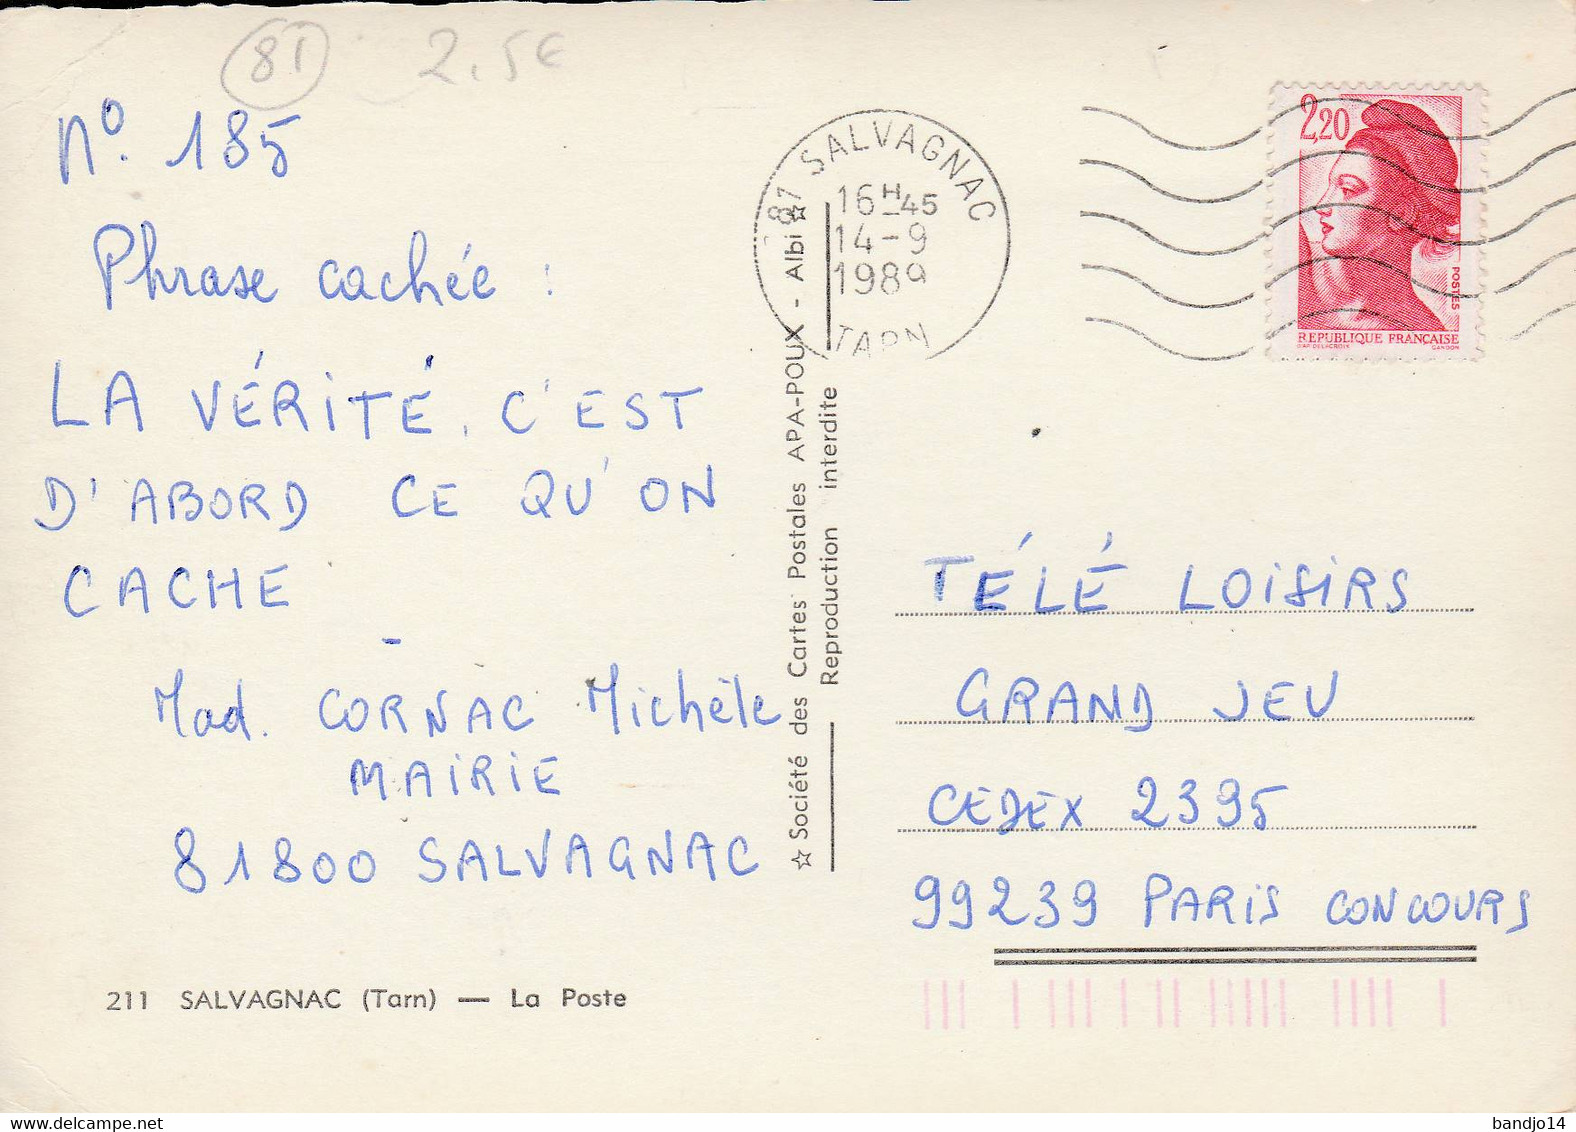 81
2.5€
n°. 185
Phrase cachée :
LA VÉRITÉ, C'EST
D'ABORD CE QU'ON
CACHE
-
Mad. CORNAC Michèle
MAIRIE
81800 SALVAGNAC
211 SALVAGNAC (Tarn) — La Poste
☆ Société des Cartes Postales APA-POUX - Albi ☆
Reproduction interdite
81 SALVAGNAC
16H45
14-9
1989
TARN
2,20
POSTES
REPUBLIQUE FRANÇAISE
D'AP. DELACROIX GANDON
TÉLÉ LOISIRS
GRAND JEU
CEDEX 2395
99239 PARIS CONCOURS
bandjo14